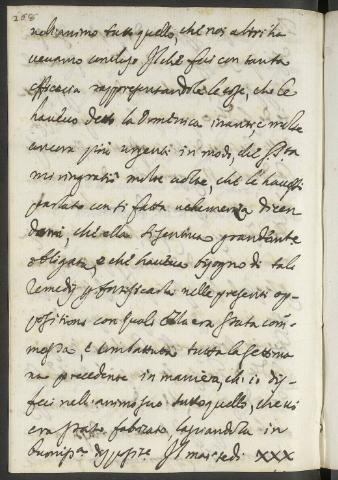 268
nell'animo tutto quello, che noi altri ha
ueuamo concluso. Il che feci con tanta
efficacia rappresentandole le cose, che le
haueuo detto la Domenica inanti, e molte
ancora più urgenti in modo, che S. Sta
mi ringratiò molte uolte, che le hauessi
parlato con sì fatta uehemenza dicen
domi, che ella si sentiua grandemente
obligata, e che haueua bisogno di tali
remedij per fortificarla nelle presenti op-
positioni con quali ella era stata com-
messa, e combattuta tutta la settima
na precedente in maniera, ch'io dis-
feci nell'animo suo tutto quello, che ui
era stato fabricato lasciandola in
buonissa dispositne. Il martedì XXX